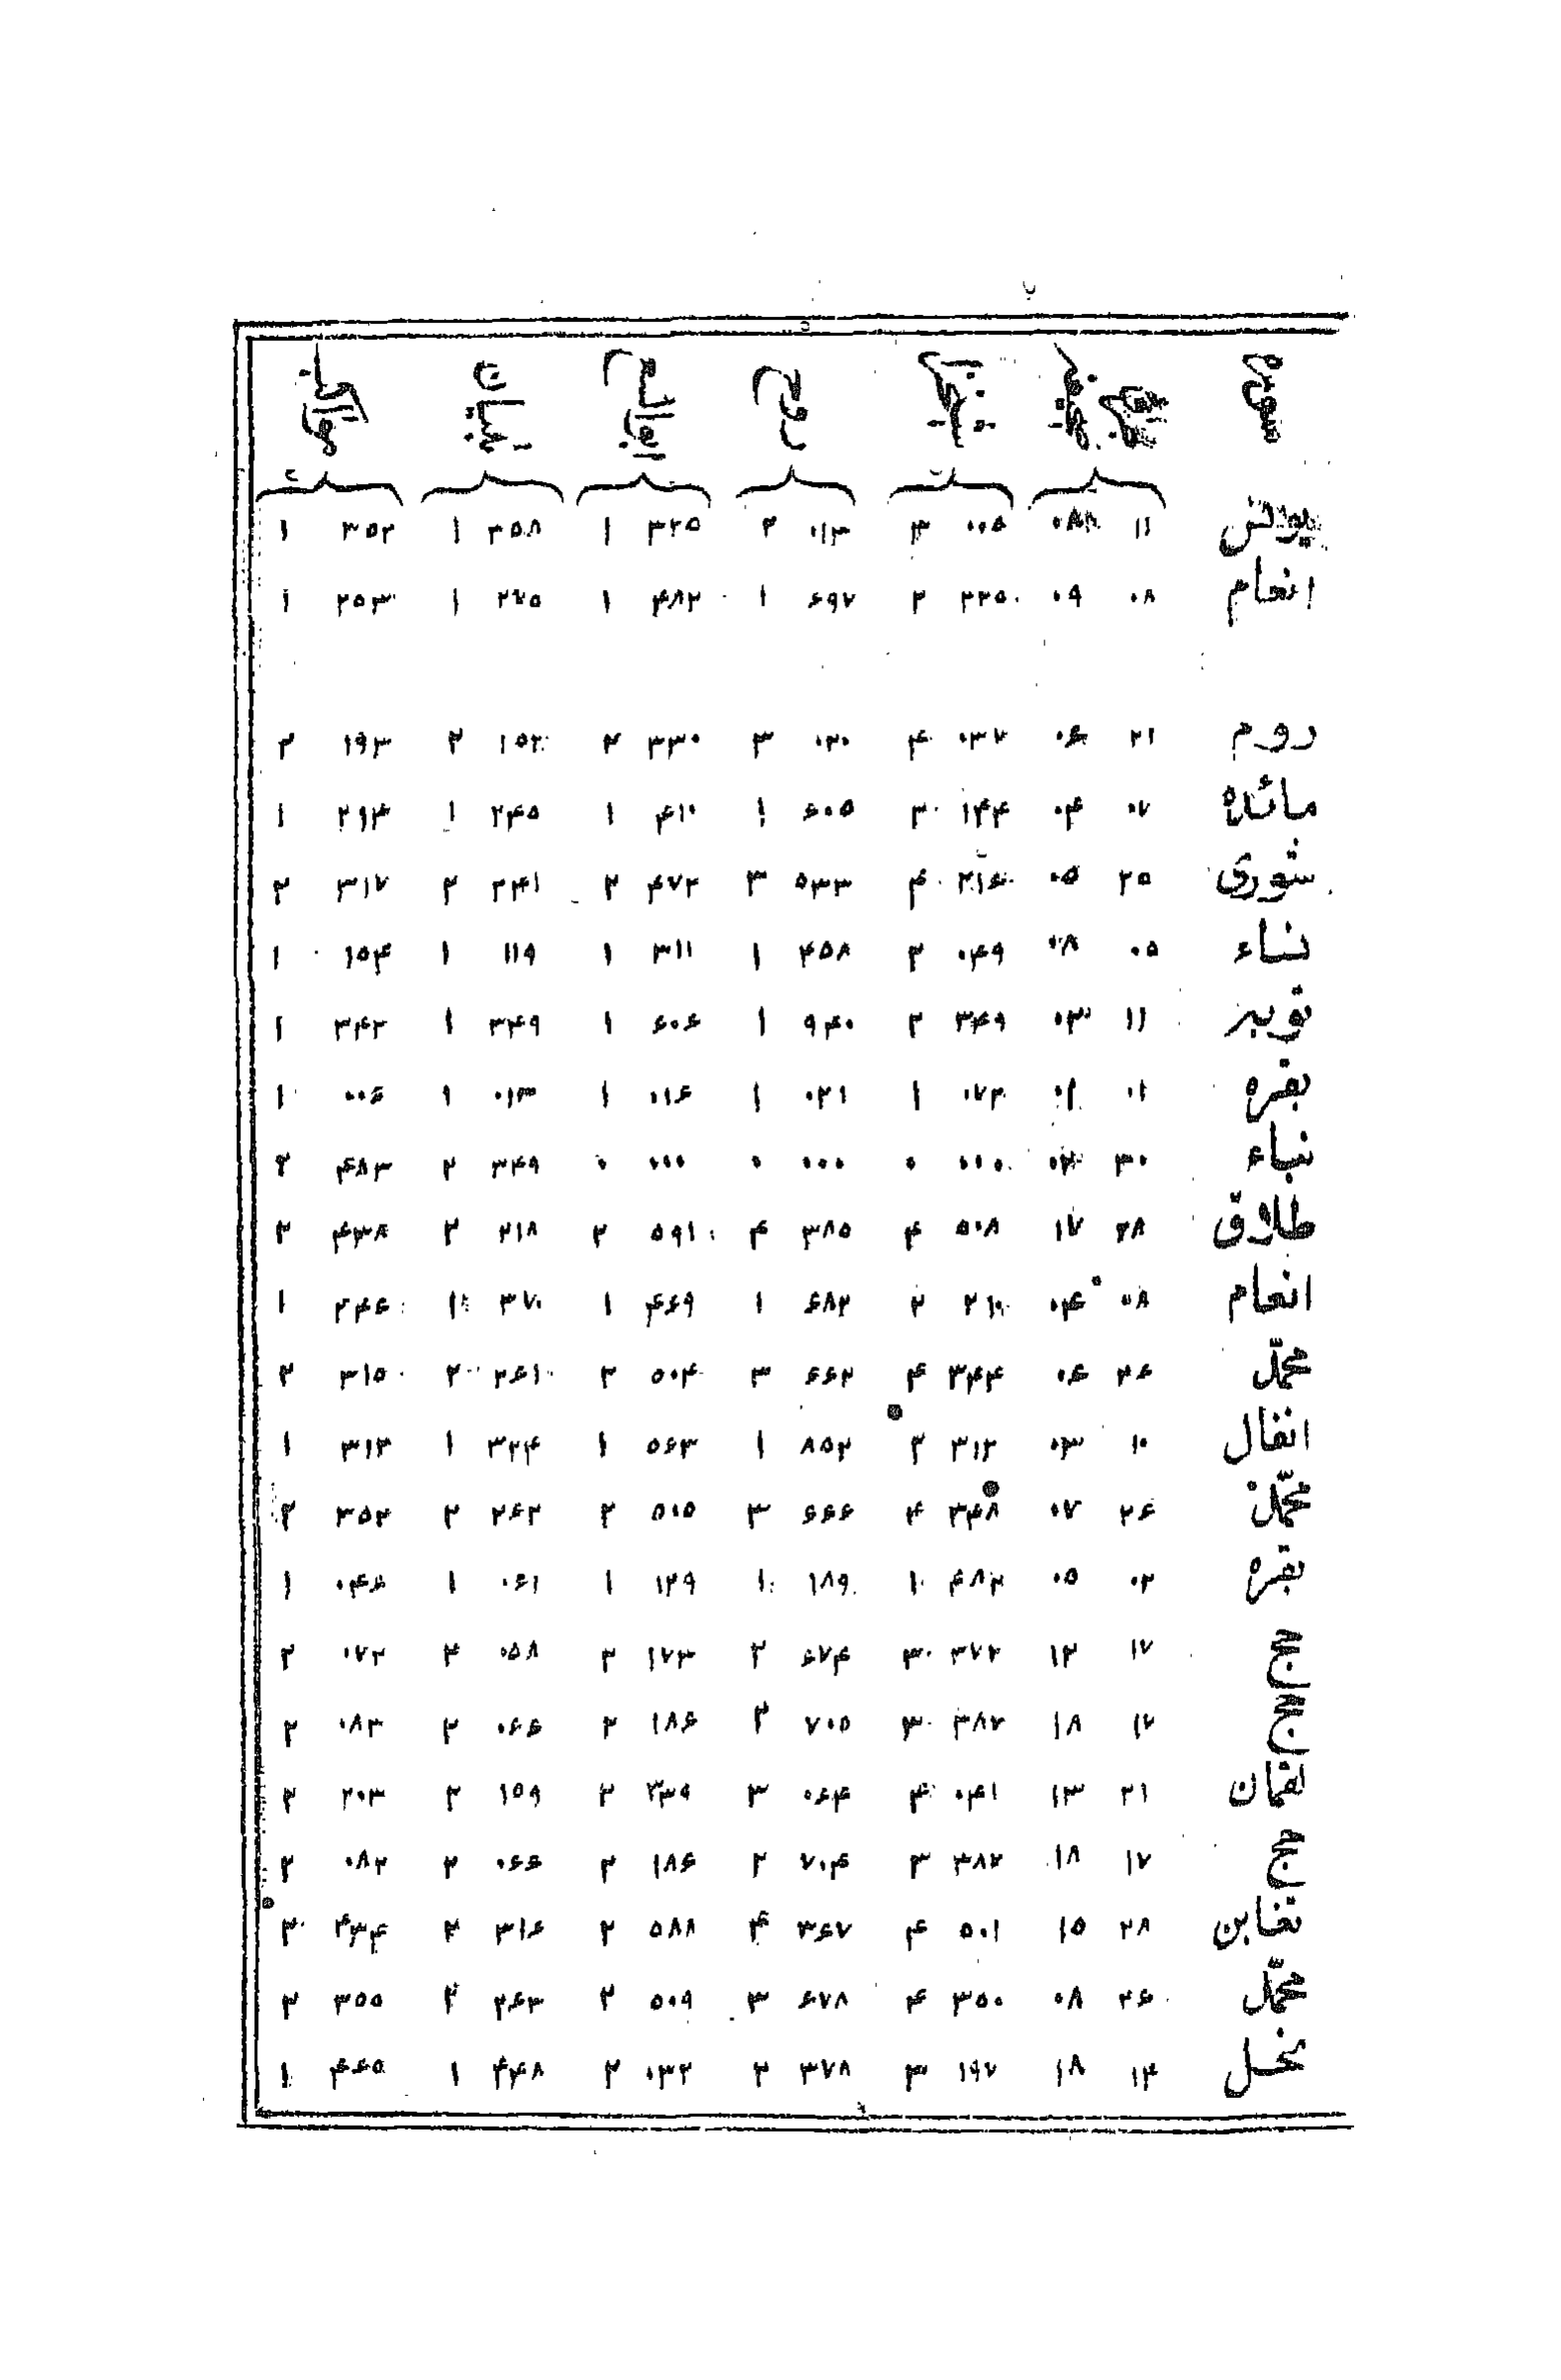 سوره
یونس ۱۱ ۰۰۵ ۳ ۰۱۳ ۲ ۳۲۵ ۱ ۳۵۸ ۱ ۳۵۲ ۱
انعام ۰۸ ۰۹ ۲۲۵ ۲ ۶۹۷ ۱ ۴۸۲ ۱ ۱ ۲۵۳ ۱
روم ۲۱ ۰۶ ۰۳۷ ۴ ۰۲۰ ۳ ۳۳۰ ۲ ۱۵۲ ۲ ۱۹۳ ۲
مائده ۰۷ ۰۴ ۱۴۴ ۲ ۶۰۵ ۱ ۴۱۰ ۱ ۲۴۵ ۱ ۲۱۴ ۱
شوری ۲۵ ۰۵ ۲۱۶ ۴ ۵۳۳ ۳ ۴۷۲ ۲ ۲۴۱ ۲ ۳۱۷ ۲
نساء ۰۵ ۰۸ ۰۴۹ ۲ ۴۵۸ ۱ ۳۱۱ ۱ ۱۱۹ ۱ ۱۵۴ ۱
توبه ۱۱ ۰۳ ۳۴۹ ۲ ۹۴۰ ۱ ۶۰۶ ۱ ۳۴۹ ۱ ۳۴۲ ۱
بقره ۰۱ ۰۱ ۰۷۳ ۱ ۰۲۱ ۱ ۰۱۶ ۱ ۰۱۳ ۱ ۰۰۶ ۱
نباء ۳۰ ۰۲ ۰۰۰ ۰ ۰۰۰ ۰ ۰۰۰ ۰ ۳۴۹ ۲ ۴۸۳ ۲
طلاق ۲۸ ۱۷ ۵۰۸ ۴ ۳۸۵ ۴ ۵۹۱ ۲ ۲۱۸ ۲ ۴۳۸ ۲
انعام ۰۸ ۰۴ ۲۱۰ ۲ ۶۸۲ ۱ ۴۶۹ ۱ ۳۷۰ ۱ ۲۴۶ ۱
محمّد ۲۶ ۰۶ ۳۴۴ ۴ ۶۶۲ ۳ ۵۰۴ ۲ ۲۶۱ ۲ ۳۱۵ ۲
انفال ۱۰ ۰۳ ۳۱۲ ۲ ۸۵۲ ۱ ۵۶۳ ۱ ۳۲۴ ۱ ۳۱۳ ۱
محمّد ۲۶ ۰۷ ۳۴۸ ۴ ۶۶۶ ۳ ۵۰۵ ۲ ۲۶۲ ۲ ۳۵۲ ۲
بقره ۰۲ ۰۵ ۴۸۲ ۱ ۱۸۹ ۱ ۱۲۹ ۱ ۰۶۱ ۱ ۰۴۶ ۱
حج ۱۷ ۱۲ ۳۷۲ ۳ ۶۷۴ ۲ ۱۷۳ ۲ ۰۵۸ ۲ ۰۷۲ ۲
حج ۱۷ ۱۸ ۳۸۷ ۳ ۷۰۵ ۲ ۱۸۶ ۲ ۰۶۶ ۲ ۰۸۳ ۲
لقمان ۲۱ ۱۳ ۰۴۱ ۴ ۰۶۴ ۳ ۳۳۹ ۲ ۱۵۹ ۲ ۲۰۳ ۲
حج ۱۷ ۱۸ ۳۸۷ ۳ ۷۰۴ ۲ ۱۸۶ ۲ ۰۶۶ ۲ ۰۸۲ ۲
تغابن ۲۸ ۱۵ ۵۰۱ ۴ ۳۶۷ ۴ ۵۸۸ ۲ ۳۱۶ ۲ ۴۳۴ ۲
محمّد ۲۶ ۰۸ ۳۵۰ ۴ ۶۷۸ ۳ ۵۰۹ ۲ ۲۶۳ ۲ ۳۵۵ ۲
نحل ۱۴ ۱۸ ۱۹۷ ۳ ۳۷۸ ۲ ۰۳۲ ۲ ۴۴۸ ۱ ۴۶۵ ۱